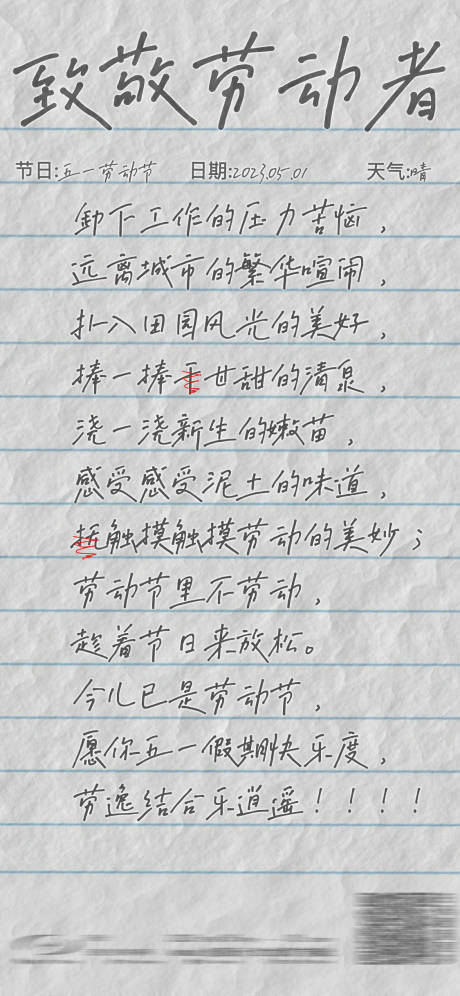 致敬劳动者
节日:五一劳动节 日期:2023.05.01 天气:晴
卸下工作的压力苦恼，
远离城市的繁华喧闹，
扑入田园风光的美好，
捧一捧甘甜的清泉，
浇一浇新生的嫩苗，
感受感受泥土的味道，
触摸触摸劳动的美妙；
劳动节里不劳动，
趁着节日来放松。
今儿已是劳动节，
愿你五一假期快乐度，
劳逸结合乐逍遥！！！！